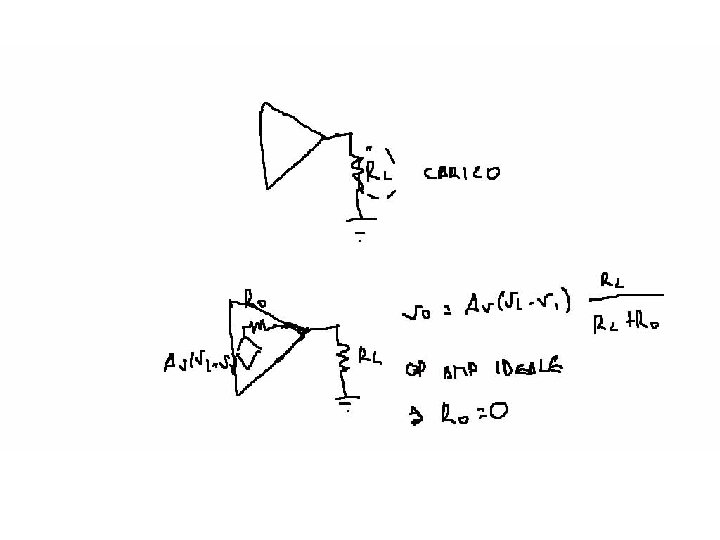 RL CARICO
Ro
Av(V2-V1)
RL
vo = Av(V2-V1) RL / RL+Ro
OP AMP IDEALE
→ Ro=0